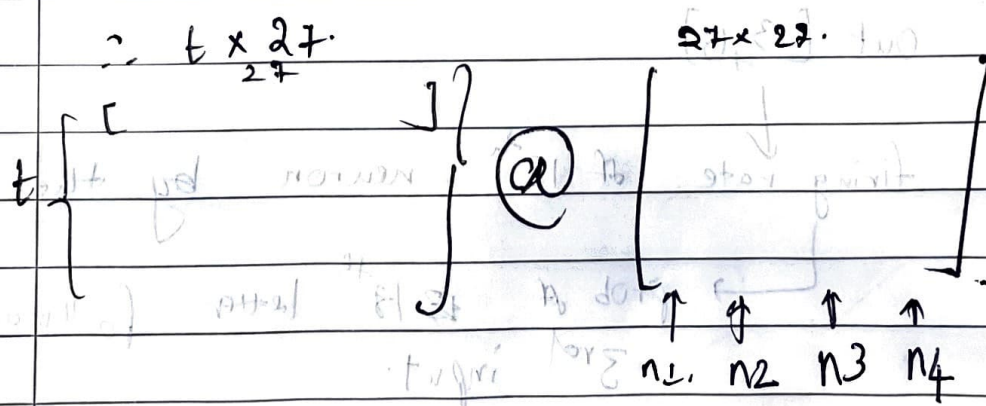 ∴ t × 27. 27 × 27.
27
[ ]
t @
n1. n2 n3 n4